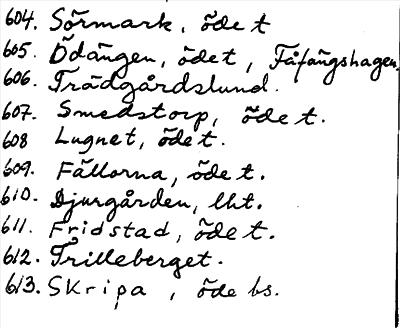 604. Sörmark, ödet
605. Ödängen, ödet, Fåfängshagen,
606. Trädgårdslund.
607. Smedstorp, ödet.
608 Lugnet, ödet.
609. Fällorna, ödet.
610. Djurgården, lht.
611. Fridstad, ödet.
612. Trilleberget.
613. Skripa, öde bs.